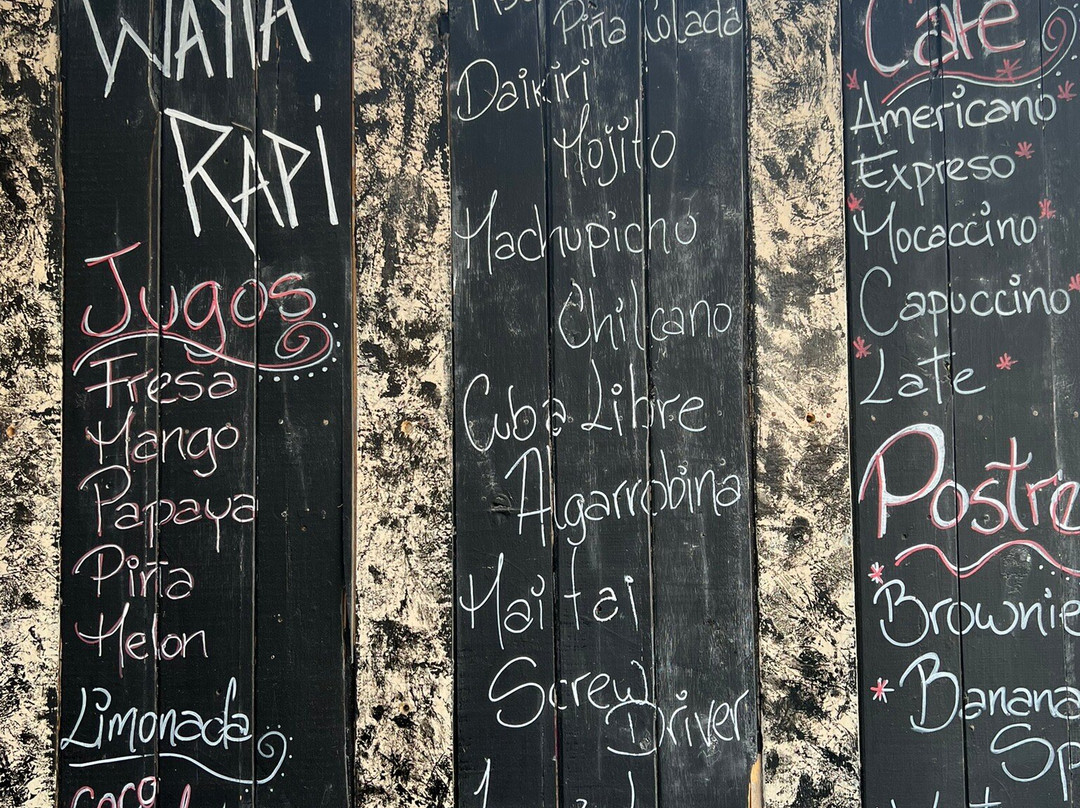 WAYRA
RAPI
Jugos
Fresa
Mango
Papaya
Piña
Melon
Limonada
Piña Colada
Daikiri
Mojito
Machupicho
Chilcano
Cuba Libre
Algarrobina
Mai tai
Screw
Driver
Café
Americano
Expreso
Mocaccino
Capuccino
Late
Postre
Brownie
Banana
Sp